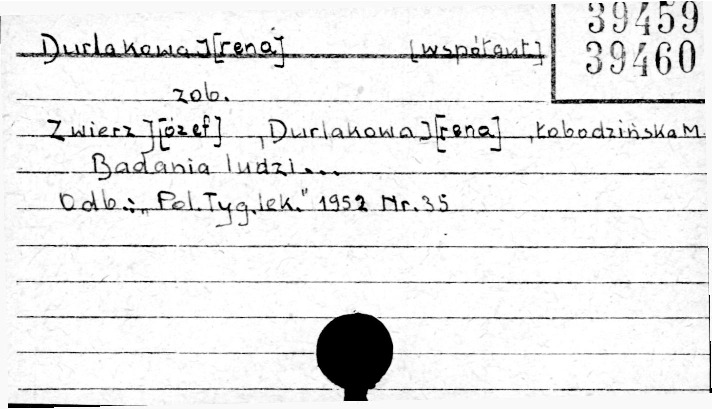 39459
39460
Durlakowa I[rena] [współaut]
zob.
Zwierz J[ózef], Durlakowa I[rena], Łobodzińska M.
Badania ludzi...
Odb.: „Pol.Tyg.lek." 1952 Nr.35